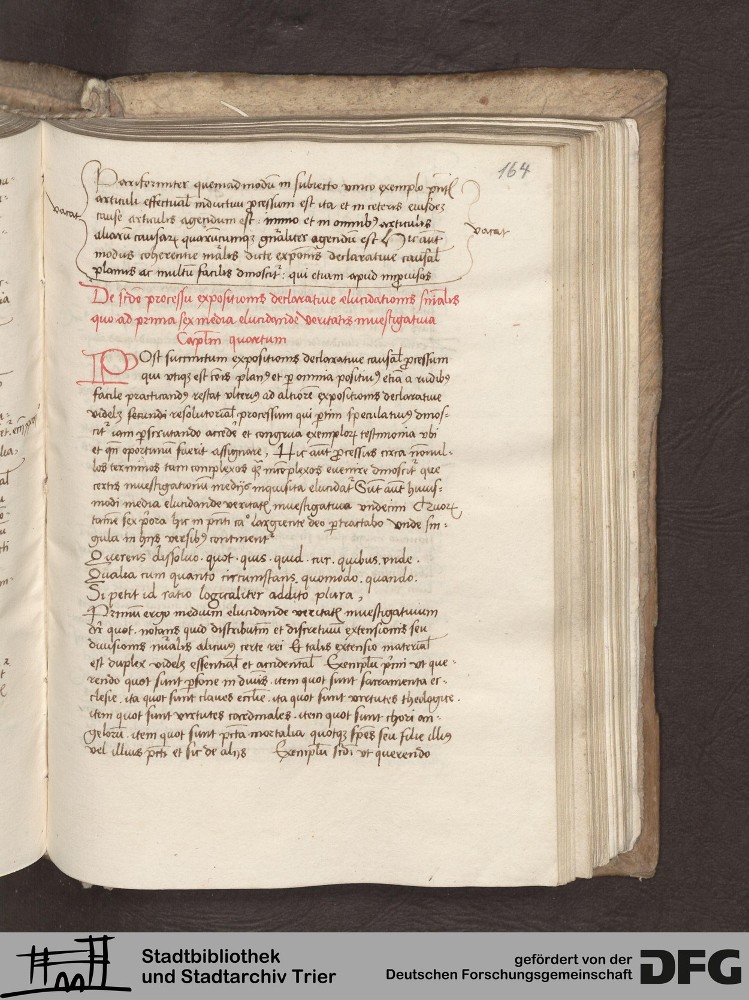 164
vacat
Pariformiter quemadmodū in subiecto vnico exemplo
articuli effectual inductum processum est ita et in ceteris eiusdez
cause articulis agendum est . immo et in omnibꝫ articulis
aliarū causarꝝ quarūcumqꝫ gn̄aliter agendū est Hic aūt
modus coherentie dicte expōnis declarative causal
planus ac multū facilis dinoscit : qui etiam apud improuisos
vacat
De scd̄o processu expositionis declarative elucidationis
quo ad prima sex media elucidande veritatis investigativa
Capłm quartum
POst succinctum expositionis declarative causal processum
qui vtiqꝫ est et per omnia positiuꝰ etiā a rudibꝰ
facile practicandꝰ restat vlteriꝰ ad altiorē expositionis declarative
videlꝫ secundi resolutorial processum qui speculatiuꝰ dinos=
cit iam perscrutando accedē et congrua exemplorꝝ testimonia vbi
et qn̄ oportunū fuerit assignare , Hic aūt ꝓcessus circa nōnul-
los terminos tam complexos qꝫ incōplexos euenire dinoscit que
certis investigationū medijs inquisita elucidat Sūt aūt huius-
modi media elucidande veritatꝭ investigativa vndecim Quorꝝ
tamē sex p̄ora hic in pn̄ti ca° largiente deo pertractabo vnde sin-
gula in hijs versibꝰ continent
Querens dissoluo . quot . quis . quid . cur . quibus . vnde .
Qualia cum quanto circumstans . quomodo . quando .
Si petit id ratio logicaliter addito plura ,
Primū ergo medium elucidande veritatꝭ investigativum
dr̄ quot . notans quid distributiū et discretiuū extensionis seu
diuisionis alicuiꝰ certe rei Et talis extensio material
est duplex videlꝫ essential et accidental Exemplū pīmi vt que-
rendo quot sunt persone in diuīs . item quot sunt sacramenta ec-
clesie . ita quot sunt claues eccłie . ita quot sunt virtutes theologice .
item quot sunt virtutes cardinales . item quot sunt chori an-
gelorū . item quot sunt pctā mortalia quotqꝫ spēs seu filie illiꝰ
vel illius pcti et sic de alijs Exemplū scdi vt querendo
Stadtbibliothek
und Stadtarchiv Trier
gefördert von der
Deutschen Forschungsgemeinschaft
DFG